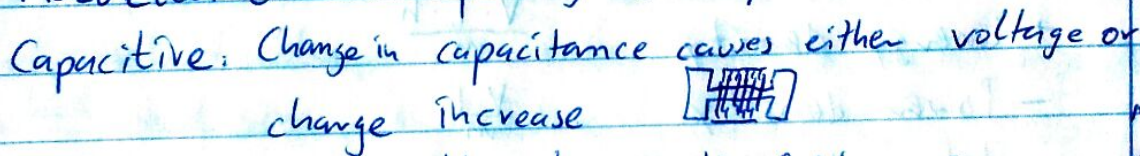 Capacitive: Change in capacitance causes either voltage or
charge increase